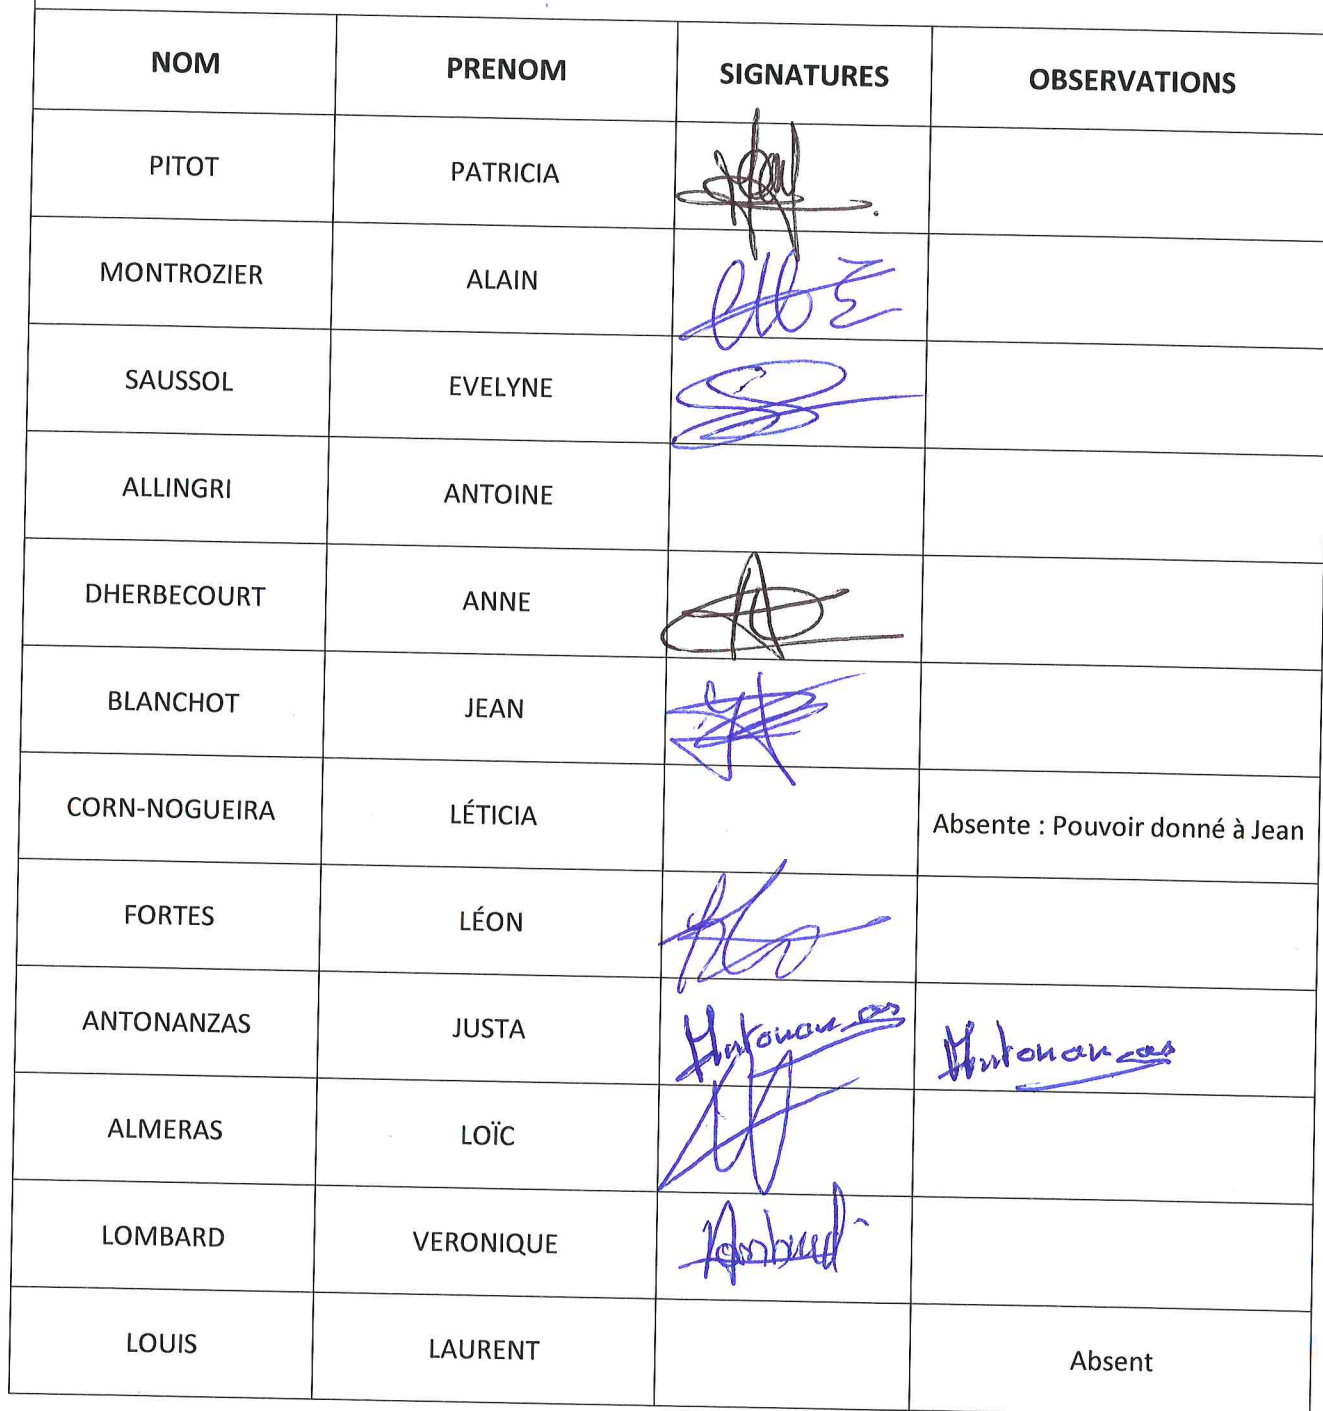 NOM PRENOM SIGNATURES OBSERVATIONS
PITOT PATRICIA
MONTROZIER ALAIN
SAUSSOL EVELYNE
ALLINGRI ANTOINE
DHERBECOURT ANNE
BLANCHOT JEAN
CORN-NOGUEIRA LÉTICIA Absente : Pouvoir donné à Jean
FORTES LÉON
ANTONANZAS JUSTA
ALMERAS LOÏC
LOMBARD VERONIQUE
LOUIS LAURENT Absent